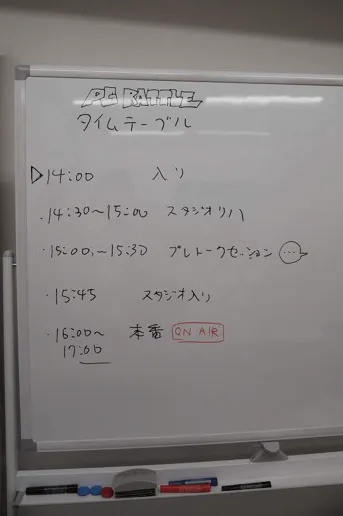 PC BATTLE
タイムテーブル
▷14:00 入り
・14:30〜15:00 スタジオリハ
・15:00〜15:30 プレトークセッション …
・15:45 スタジオ入り
・16:00〜 本番 ON AIR
17:00